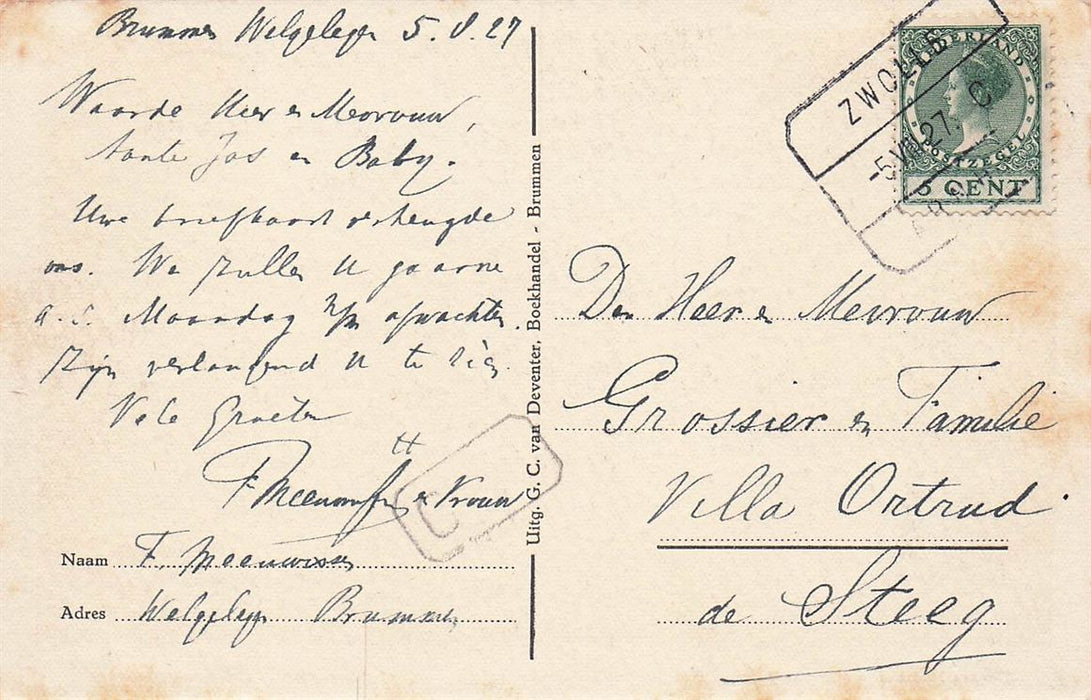 Brummen Welgelegen 5.8.27
Waarde Heer en Mevrouw,
tante Jos en Baby.
Uwe briefkaart verheugde
ons. We zullen u gaarne
a.s. Maandag afwachten.
zijn verlangend u te zien.
Vele Groeten
tt
F Meeuwissen en Vrouw
Naam F. Meeuwissen
Adres Welgelegen Brummen
Uitg. G. C. van Deventer, Boekhandel - Brummen
NEDERLAND
POSTZEGEL
5 CENT
ZWOLLE
-5.VIII.27. C
Den Heer en Mevrouw
Grossier en Familie
Villa Ortrud
de Steeg